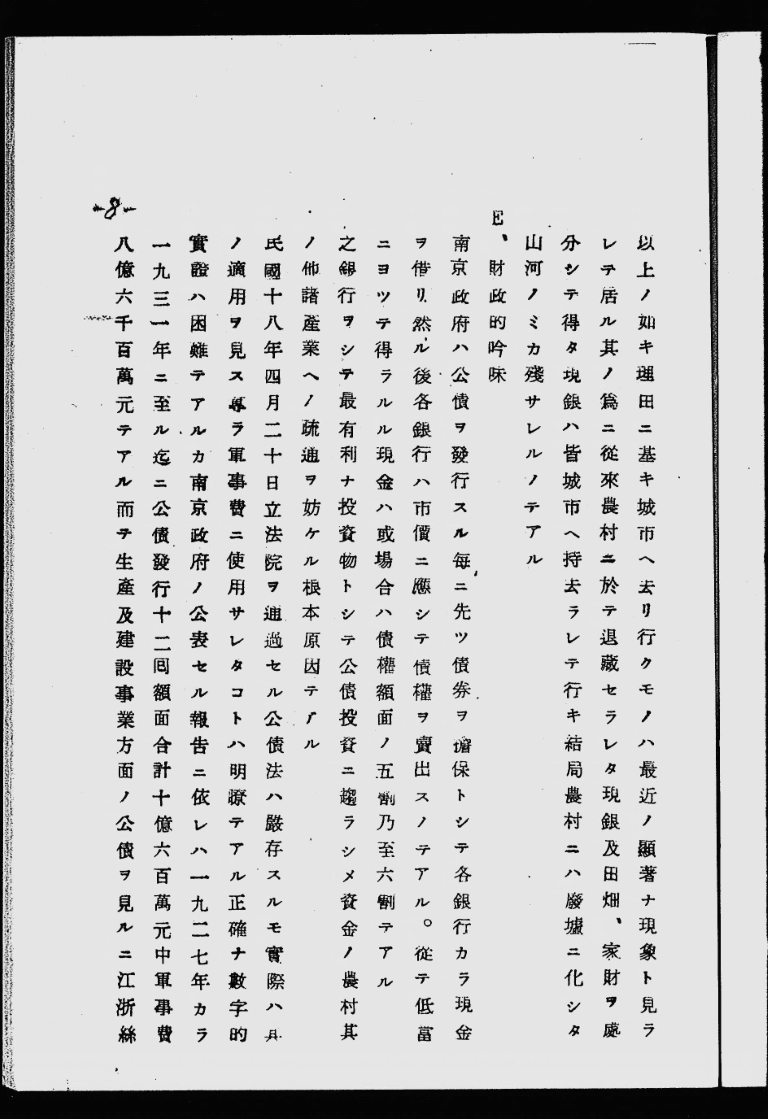 以上ノ如キ理田ニ基キ城市ヘ去リ行クモノハ最近ノ顯著ナ現象ト見ラ
レテ居ル其ノ爲ニ從來農村ニ於テ退藏セラレタ現銀及田畑、家財ヲ處
分シテ得タ現銀ハ皆城市ヘ持去ラレテ行キ結局農村ニハ廢墟ニ化シタ
山河ノミカ殘サレルノテアル
E、財政的吟味
南京政府ハ公債ヲ發行スル每ニ先ツ債券ヲ擔保トシテ各銀行カラ現金
ヲ借リ然ル後各銀行ハ市價ニ應シテ債權ヲ賣出スノテアル。從テ低當
ニヨツテ得ラルル現金ハ或場合ハ債權額面ノ五割乃至六割テアル
之銀行ヲシテ最有利ナ投資物トシテ公債投資ニ趨ラシメ資金ノ農村其
ノ他諸產業ヘノ疏通ヲ妨ケル根本原因テアル
民國十八年四月二十日立法院ヲ通過セル公債法ハ嚴存スルモ實際ハ具
ノ適用ヲ見ス專ラ軍事費ニ使用サレタコトハ明瞭テアル正確ナ數字的
實證ハ困難テアルカ南京政府ノ公表セル報告ニ依レハ一九二七年カラ
一九三一年ニ至ル迄ニ公債發行十二囘額面合計十億六百萬元中軍事費
八億六千百萬元テアル而テ生產及建設事業方面ノ公債ヲ見ルニ江浙絲
-8-